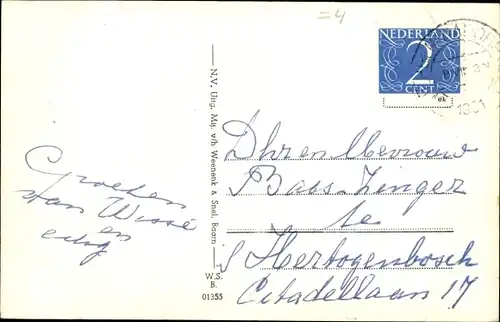 =4
NEDERLAND
2
CENT
1951
N.V. Uitg. Mij. v/h Weenenk & Snel, Baarn
W.S.
B.
01355
Groeten
van Wissé
en
Dhr en Mevrouw
Baas-Zinger
te
s Hertogenbosch
Citadellaan 17